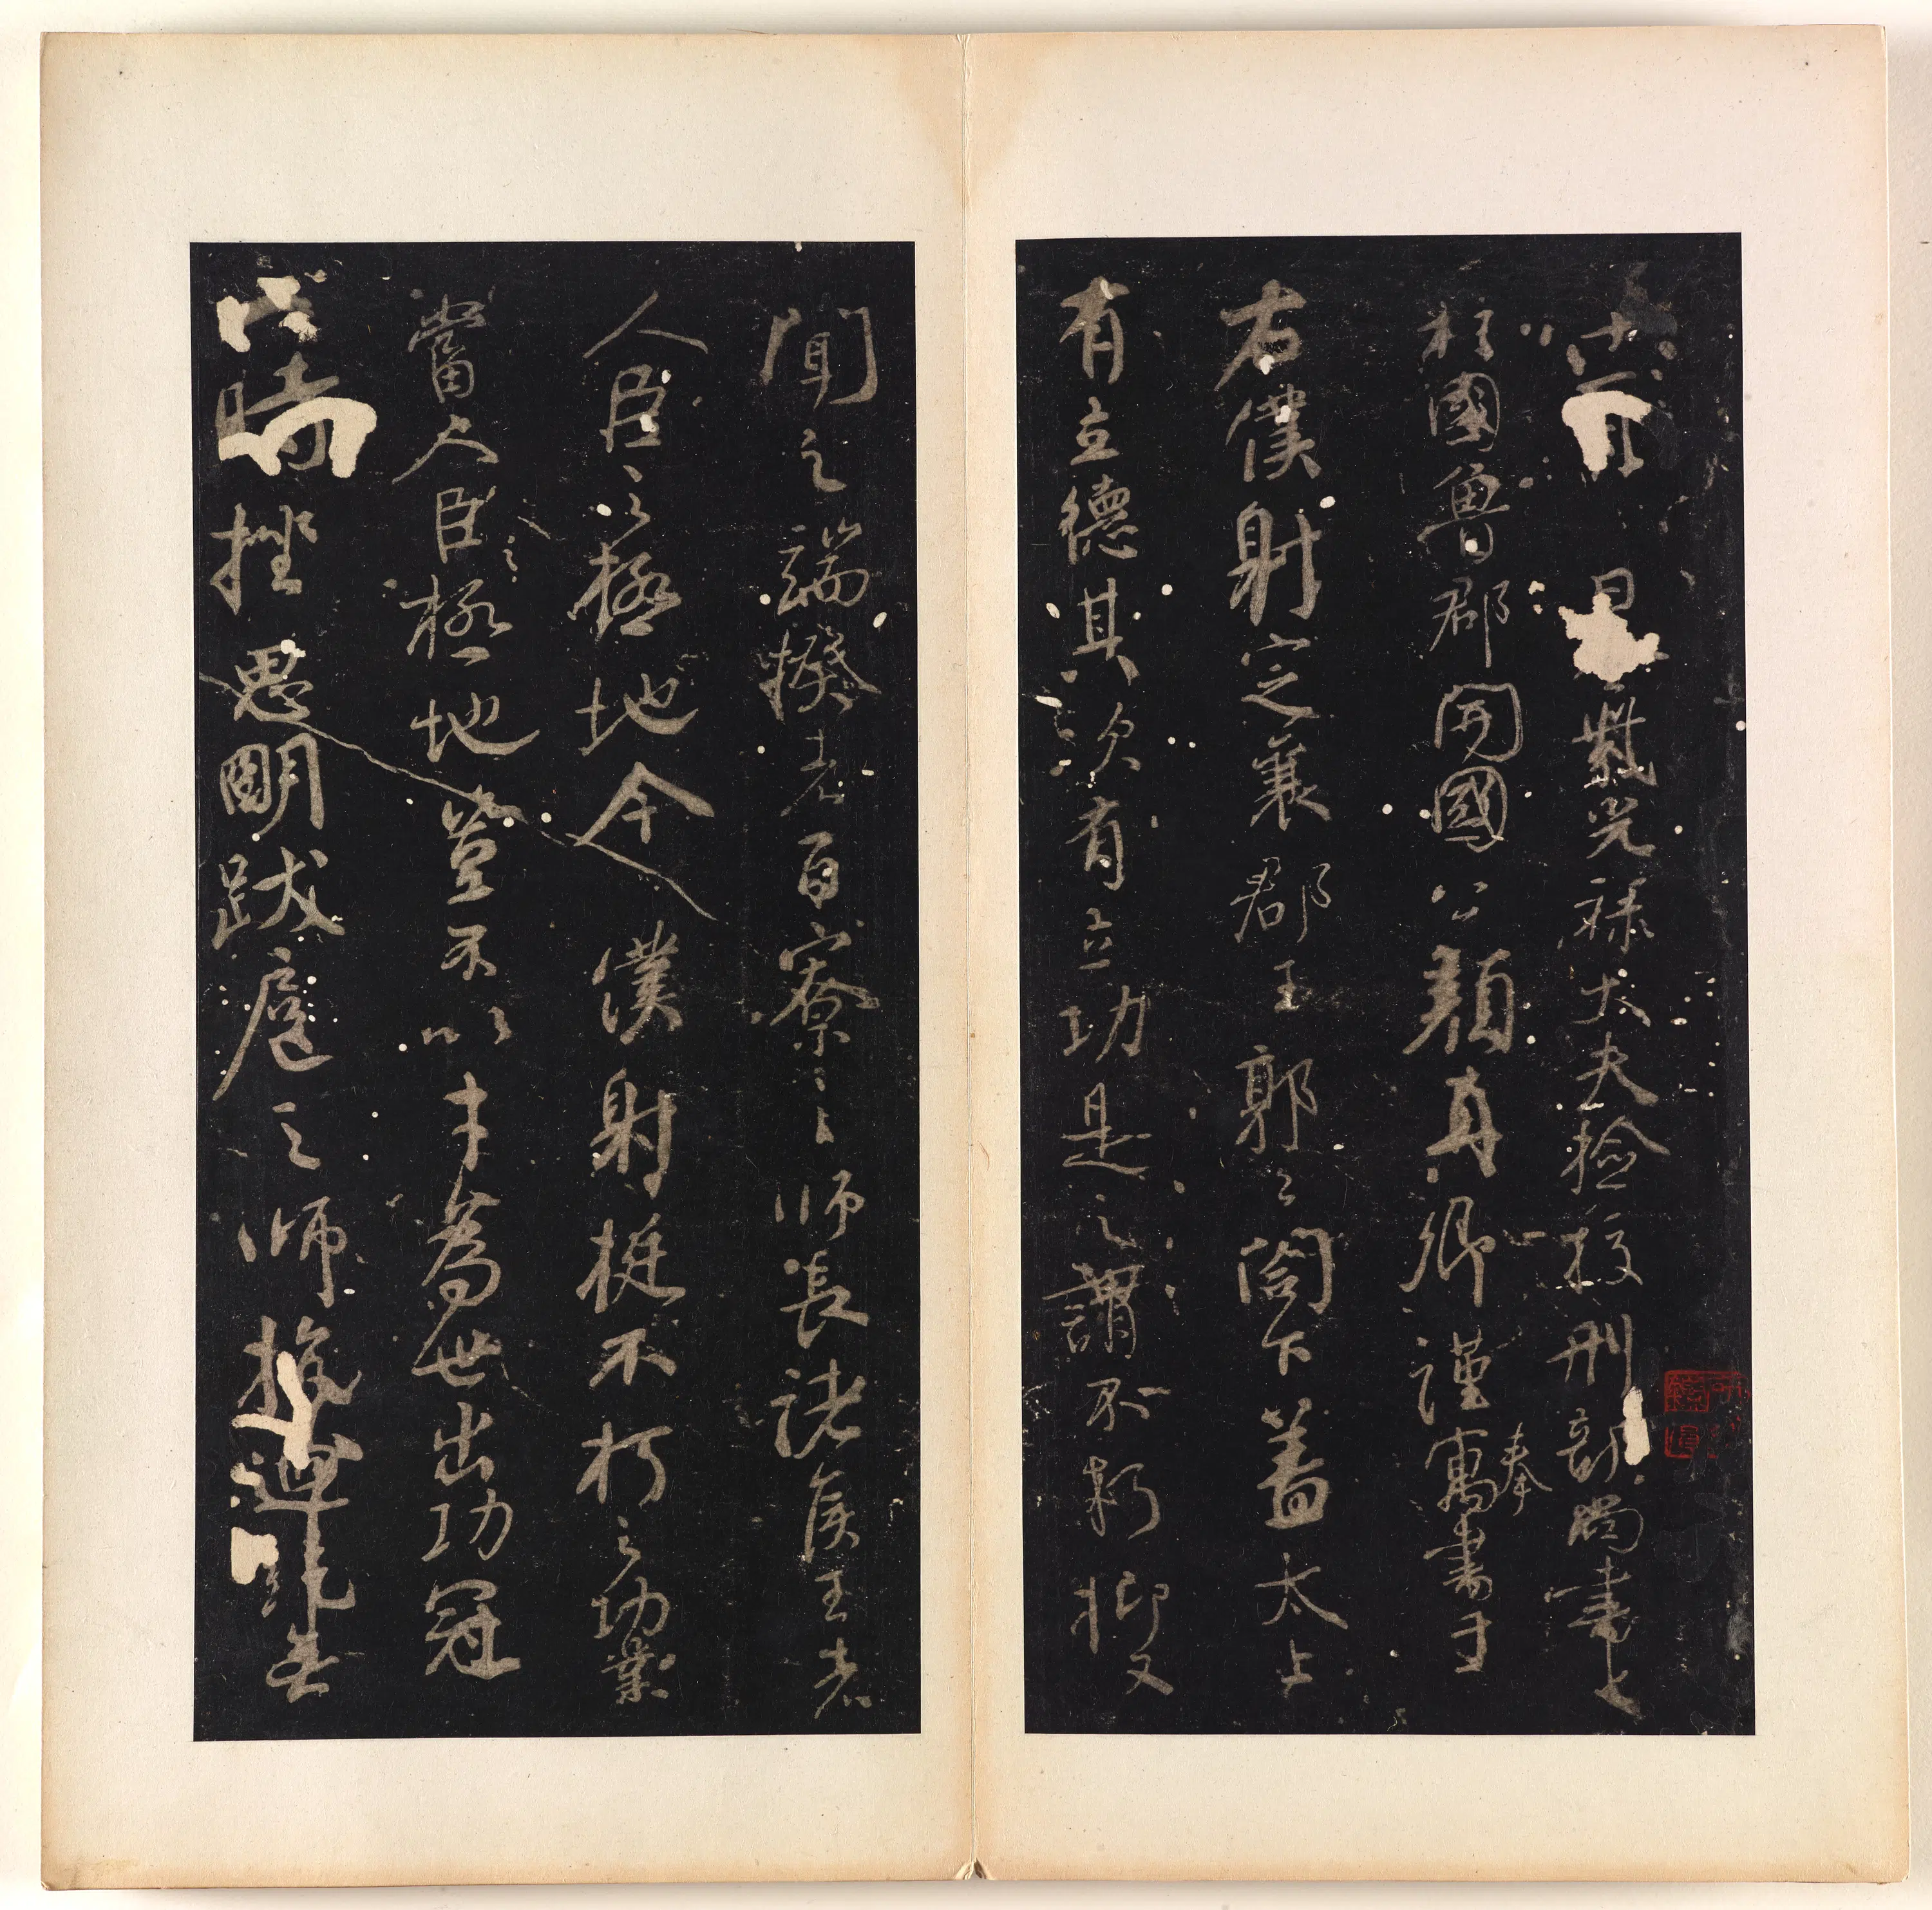 十一月 日紫光祿大夫檢校刑部尚書上
柱國魯郡開國公顏真卿謹奉寓書于
右僕射定襄郡王郭公閣下蓋太上
有立德其次有立功是之謂不朽抑又
聞之端揆者百寮之師長諸侯王者
人臣之極地今僕射挺不朽之功業
當人臣之極地豈不以才為世出功冠
時挫思明跋扈之師抗迴紇無